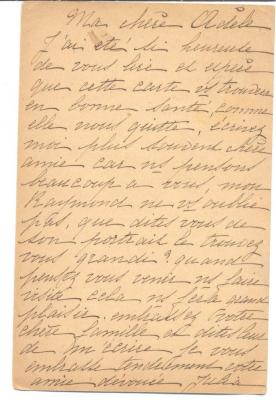 Ma chère Adèle
J'ai été si heureuse
de vous lire et espère
que cette carte vs trouvera
en bonne santé, comme
elle nous quitte, écrivez
moi plus souvent chère
amie car ns pensons
beaucoup a vous, mon
Raymond ne vs oublie
pas, que dites vous de
son portrait le trouvez
vous grandi? quand
pensez vous venir ns faire
visite, cela ns fera grand
plaisir. embrassez votre
chère famille et dites leur
de m'écrire Je vous
embrasse tendrement votre
amie dévouée Julia